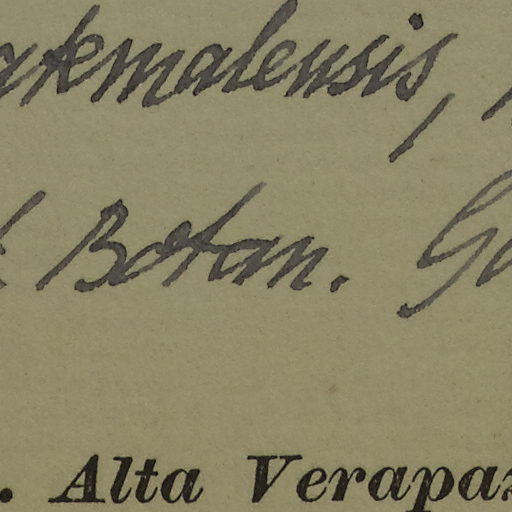 atemalensis,
Botan. Ga
. Alta Verapaz